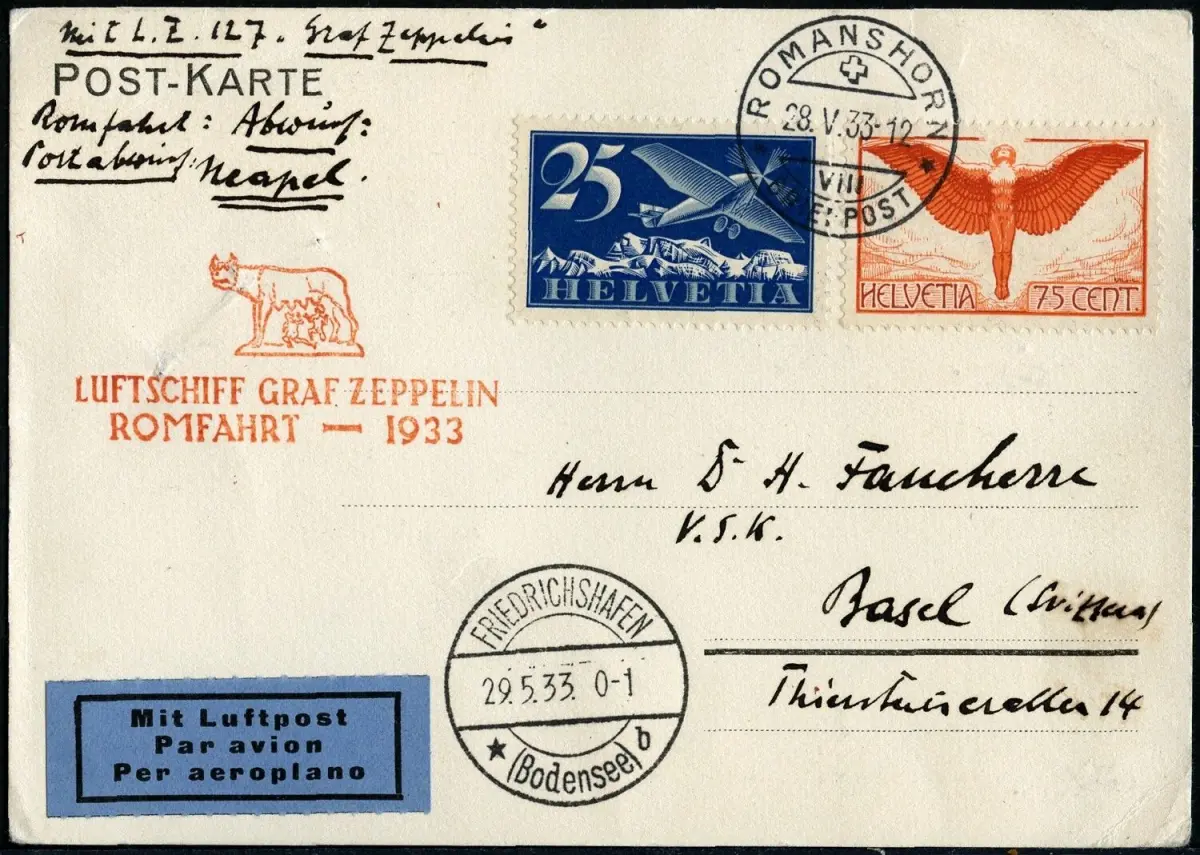 Mit L. Z. 127. "Graf Zeppelin"
POST-KARTE
Romfahrt: Abwurf:
Postabwurf: Neapel.
ROMANSHORN
28. V. 33-12
VIII
BRIEFPOST
25
HELVETIA
HELVETIA 75 CENT.
LUFTSCHIFF GRAF ZEPPELIN
ROMFAHRT — 1933
Herrn Dr H. Faucherre
V.S.K.
Basel (Svizzera)
14
FRIEDRICHSHAFEN
29.5.33. 0-1
(Bodensee) b
Mit Luftpost
Par avion
Per aeroplano